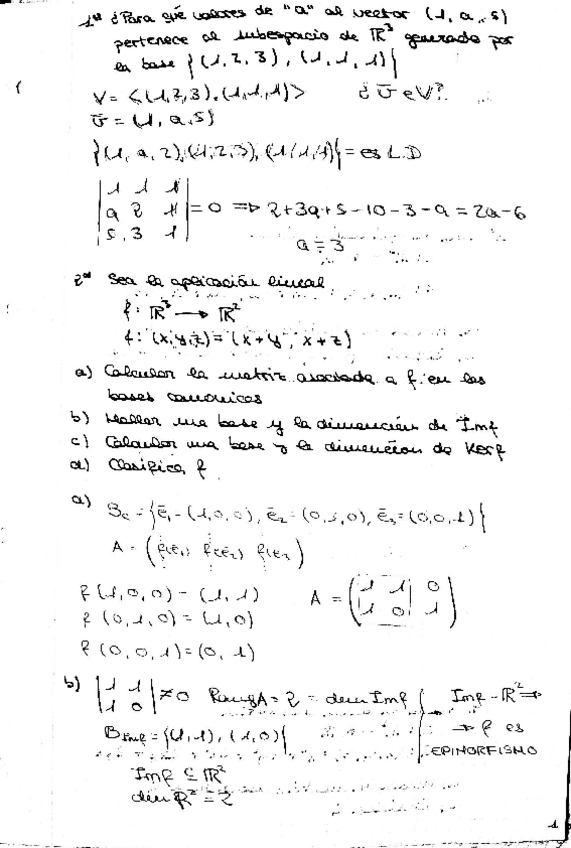 1º ¿Para qué valores de "a" al vector (1, a, 5)
pertenece al subespacio de ℝ³ generado por
la base {(1, 2, 3), (1, 1, 1)}
V = <(1,2,3), (1,1,1)> ¿ v̄ ∈ V?
v̄ = (1, a, 5)
{(1, a, 2), (1,2,3), (1,1,1)} = es L.D
|1 1 1|
|a 2 1| = 0 ⇒ 2+3a+5-10-3-a = 2a-6
|5 3 1|
a = 3
2º Sea la aplicación lineal
f: ℝ³ → ℝ²
f: (x,y,z) = (x+y, x+z)
a) Calcular la matriz asociada a f en las
bases canonicas
b) Hallar una base y la dimensión de Imf
c) Calcular una base y la dimensión de Kerf
d) Clasifica f
a) Bc = {ē₁ = (1,0,0), ē₂ = (0,1,0), ē₃ = (0,0,1)}
A = (f(ē₁) f(ē₂) f(ē₃))
f(1,0,0) = (1,1)
f(0,1,0) = (1,0)
f(0,0,1) = (0,1)
A = (1 1 0
1 0 1)
b) |1 1|
|1 0| ≠ 0 Rang A = 2 = dim Imf { Imf = ℝ² ⇒
⇒ f es
B imf = {(1,1), (1,0)} EPIMORFISMO
Imf ⊆ ℝ²
dim ℝ² = 2
1